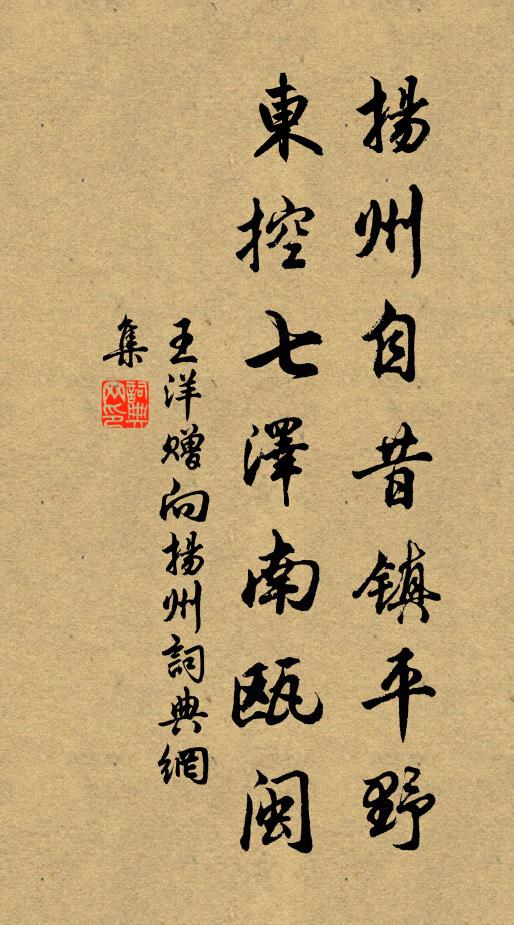 揚州自昔鎮平野
東控七澤南甌閩
王洋赠向揚州詞典網
集
詞典
网印